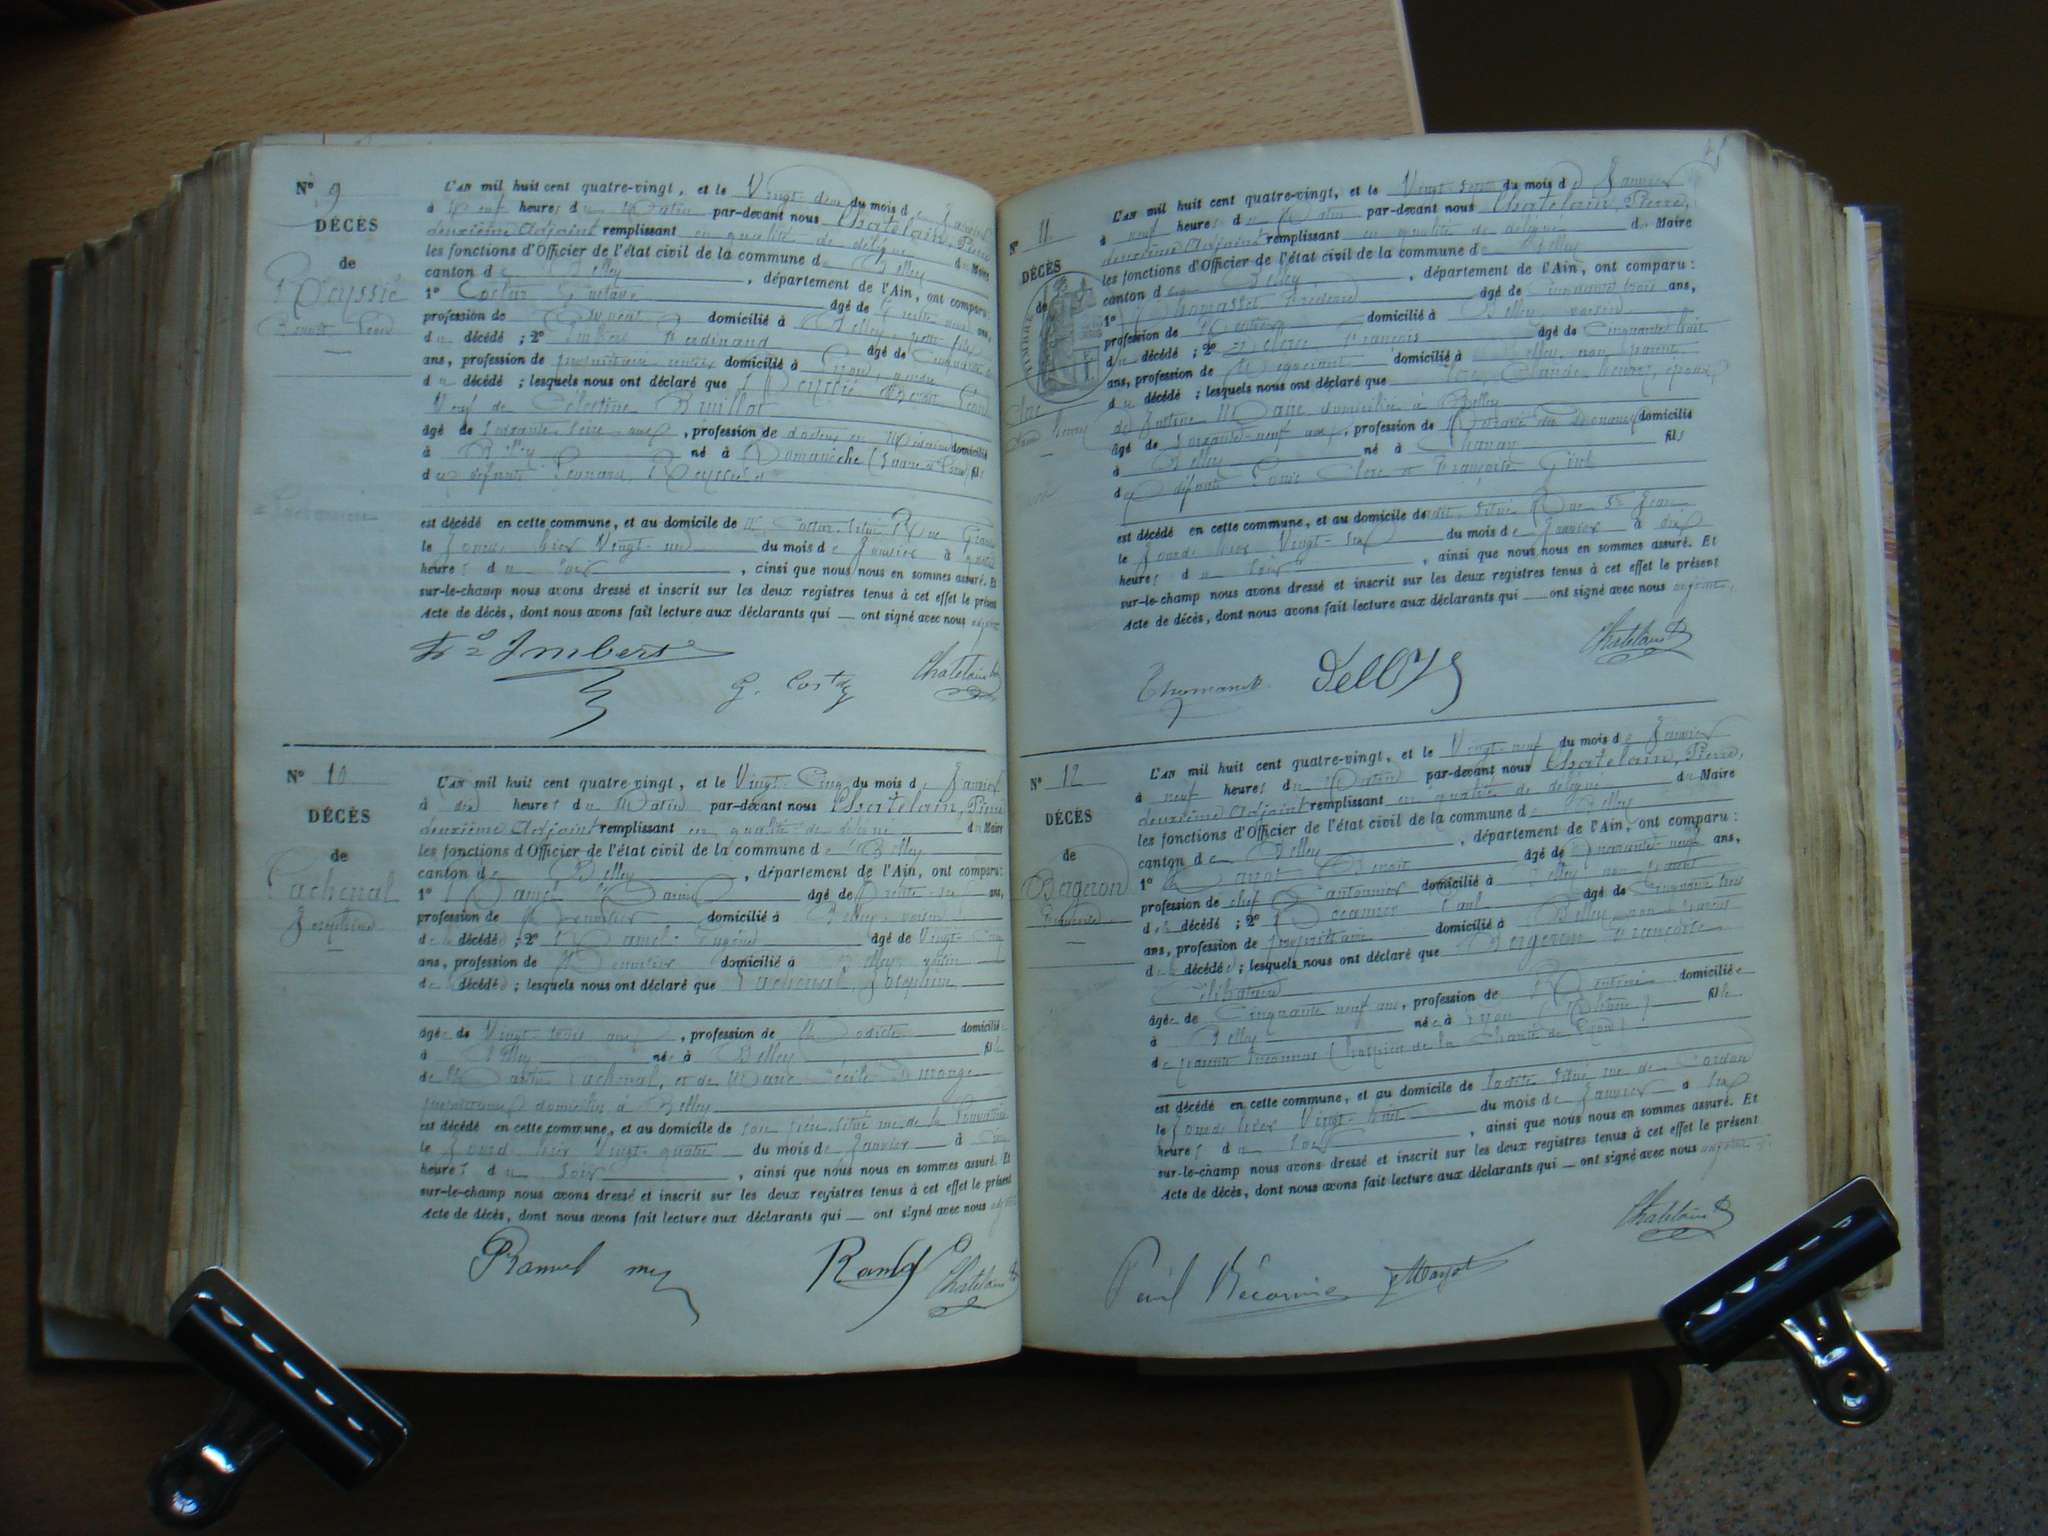 N° 9
DÉCÈS
de
Reyssié
Benoit Léon
L'AN mil huit cent quatre-vingt, et le Vingt-deux du mois de Janvier
à neuf heures du Matin par-devant nous Chatelain, Pierre
deuxième Adjoint remplissant en qualité de délégué du Maire
les fonctions d'Officier de l'état civil de la commune de Belley
canton de Belley, département de l'Ain, ont comparu:
1° Gustave âgé de Trente neuf ans,
profession de domicilié à Belley
du décédé ; 2° Imbert Ferdinand âgé de Cinquante
ans, profession de propriétaire rentier domicilié à Lyon, gendre
du décédé ; lesquels nous ont déclaré que Reyssié Benoit Léon
Veuf de Célestine
âgé de Soixante Seize ans, profession de docteur en Médecine domicilié
à Belley né à Romanèche (Saône et Loire) fils
de défunt Reyssié
est décédé en cette commune, et au domicile de Mr situé Rue Grande
le Jour de hier Vingt-un du mois de Janvier à quatre
heures du soir, ainsi que nous nous en sommes assuré. Et
sur-le-champ nous avons dressé et inscrit sur les deux registres tenus à cet effet le présent
Acte de décès, dont nous avons fait lecture aux déclarants qui — ont signé avec nous adjoint
Fd Imbert
G. Chatelain
N° 10
DÉCÈS
de
Tachenal
Joséphine
L'AN mil huit cent quatre-vingt, et le Vingt-Cinq du mois de Janvier
à dix heures du Matin par-devant nous Chatelain, Pierre
deuxième Adjoint remplissant en qualité de délégué du Maire
les fonctions d'Officier de l'état civil de la commune de Belley
canton de Belley, département de l'Ain, ont comparu:
1° Ramel âgé de Trente ans,
profession de Menuisier domicilié à Belley, voisin
de la décédée ; 2° Ramel Eugène âgé de Vingt-Cinq
ans, profession de Menuisier domicilié à Belley, voisin
de la décédée ; lesquels nous ont déclaré que Tachenal, Joséphine
âgée de Vingt trois ans, profession de Modiste domiciliée
à Belley née à Belley fille
de Tachenal, et de Marie Cécile
domiciliés à Belley
est décédé en cette commune, et au domicile de son père, situé rue de la
le Jour de hier Vingt-quatre du mois de Janvier à Cinq
heures du soir, ainsi que nous nous en sommes assuré. Et
sur-le-champ nous avons dressé et inscrit sur les deux registres tenus à cet effet le présent
Acte de décès, dont nous avons fait lecture aux déclarants qui — ont signé avec nous adjoint
Ramel Chatelain
N° 11
DÉCÈS
de
TIMBRE
Clerc
Claude Henry
L'AN mil huit cent quatre-vingt, et le Vingt-Sept du mois de Janvier
à neuf heures du Matin par-devant nous Chatelain, Pierre,
deuxième Adjoint remplissant en qualité de délégué du Maire
les fonctions d'Officier de l'état civil de la commune de Belley
canton de Belley, département de l'Ain, ont comparu:
1° âgé de Cinquante trois ans,
profession de domicilié à Belley, voisin
du décédé ; 2° François âgé de Cinquante huit
ans, profession de Négociant domicilié à Belley, non parent
du décédé ; lesquels nous ont déclaré que Clerc, Claude henry, époux
de Marie domiciliée à Belley
âgé de Soixante-neuf ans, profession de domicilié
à Belley né à Chanay fils
de défunts Louis Clerc et Françoise
est décédé en cette commune, et au domicile dudit situé Rue St Jean
le Jour de hier Vingt-Six du mois de Janvier à dix
heures du soir, ainsi que nous nous en sommes assuré. Et
sur-le-champ nous avons dressé et inscrit sur les deux registres tenus à cet effet le présent
Acte de décès, dont nous avons fait lecture aux déclarants qui — ont signé avec nous adjoint,
Chatelain
N° 12
DÉCÈS
de
L'AN mil huit cent quatre-vingt, et le Vingt-neuf du mois de Janvier
à neuf heures du Matin par-devant nous Chatelain, Pierre,
deuxième Adjoint remplissant en qualité de délégué du Maire
les fonctions d'Officier de l'état civil de la commune de Belley
canton de Belley, département de l'Ain, ont comparu:
1° Benoit âgé de Quarante neuf ans,
profession de chef Cantonnier domicilié à Belley non parent
de la décédée ; 2° Récamier Paul âgé de Cinquante trois
ans, profession de propriétaire domicilié à Belley, non parent
de la décédée ; lesquels nous ont déclaré que Françoise
Célibataire
âgée de Cinquante neuf ans, profession de Rentière domiciliée
à Belley née à Lyon (Rhône) fille
de parents inconnus (hospice de la Charité de Lyon)
est décédé en cette commune, et au domicile de ladite situé rue de
le Jour de hier Vingt-huit du mois de Janvier à Six
heures du soir, ainsi que nous nous en sommes assuré. Et
sur-le-champ nous avons dressé et inscrit sur les deux registres tenus à cet effet le présent
Acte de décès, dont nous avons fait lecture aux déclarants qui — ont signé avec nous adjoint
Chatelain
Paul Récamier